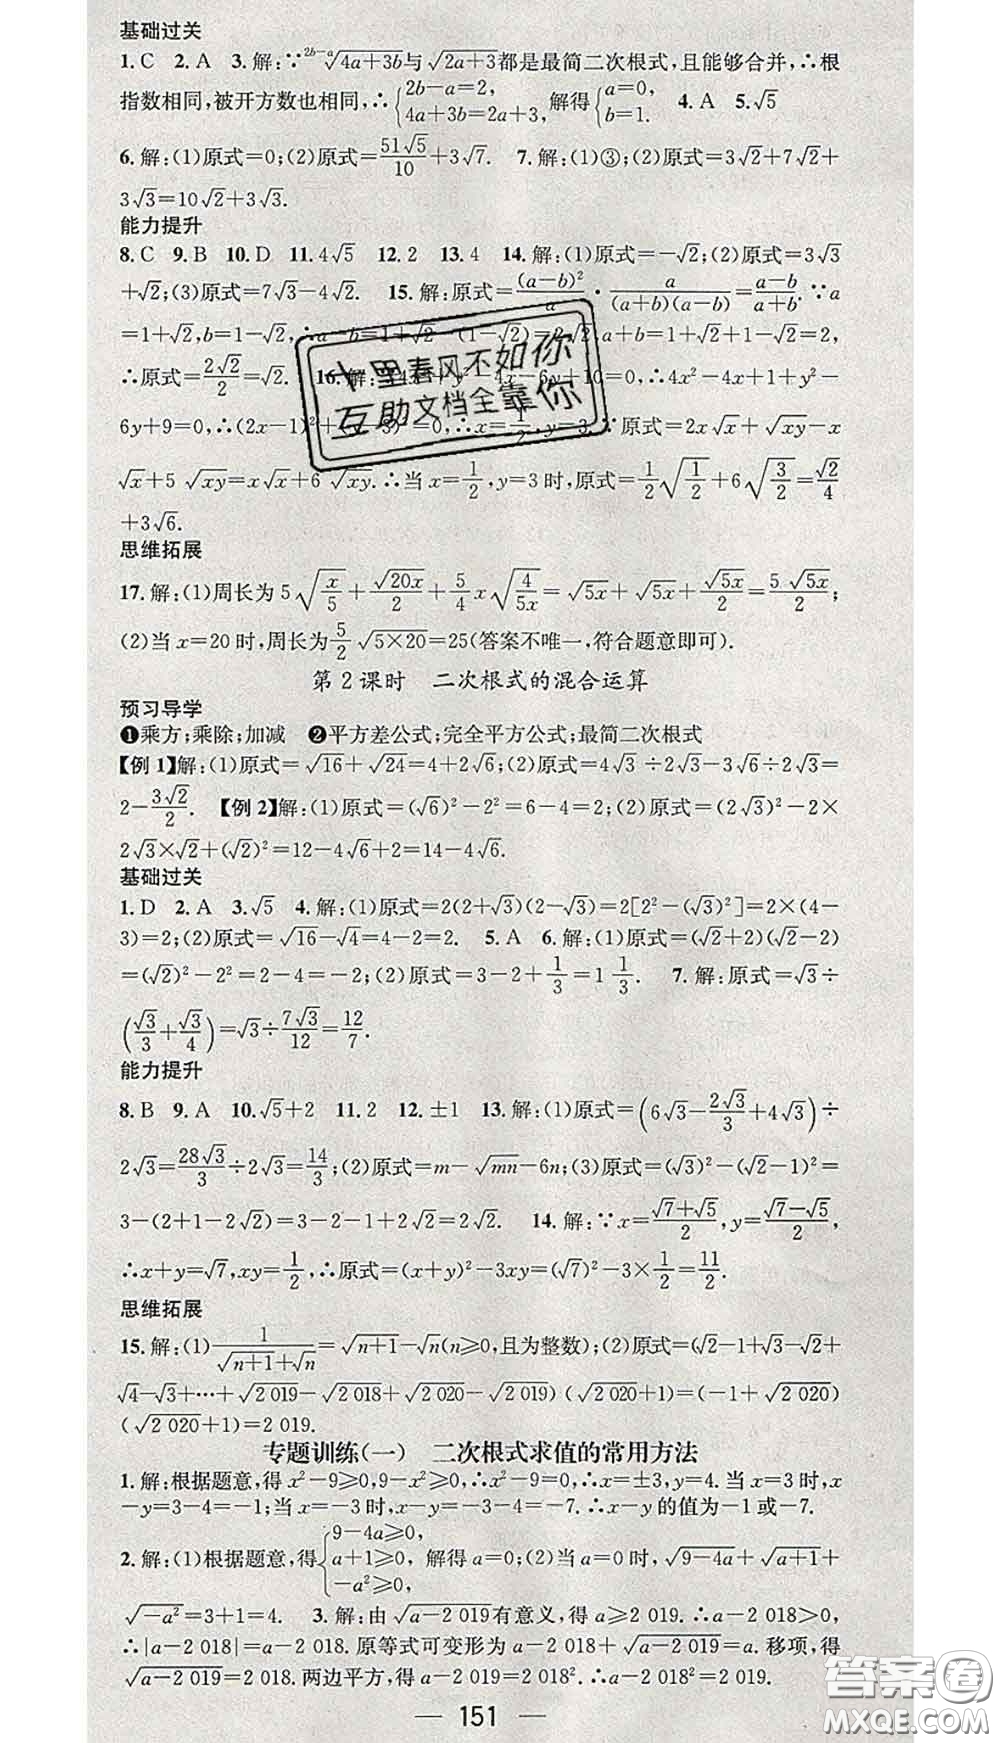 基础过关
1. C 2. A 3. 解:∵ ²ᵇ⁻ᵃ√(4a+3b) 与 √(2a+3) 都是最简二次根式,且能够合并,∴根
指数相同,被开方数也相同,∴{2b-a=2, 4a+3b=2a+3, 解得{a=0, b=1. 4. A 5. √5
6. 解:(1)原式=0;(2)原式=51√5/10+3√7. 7. 解:(1)③;(2)原式=3√2+7√2+
3√3=10√2+3√3.
能力提升
8. C 9. B 10. D 11. 4√5 12. 2 13. 4 14. 解:(1)原式=-√2;(2)原式=3√3
+√2;(3)原式=7√3-4√2. 15. 解:原式=(a-b)²/a·a/((a+b)(a-b))=(a-b)/(a+b). ∵a
=1+√2,b=1-√2,∴a-b=1+√2-(1-√2)=2√2,a+b=1+√2+1-√2=2,
∴原式=2√2/2=√2. 16. 解:∵4x²+y²-4x-6y+10=0,∴4x²-4x+1+y²-
6y+9=0,∴(2x-1)²+(y-3)²=0,∴x=1/2,y=3. ∵原式=2x√x+√(xy)-x
√x+5√(xy)=x√x+6√(xy). ∴当x=1/2,y=3时,原式=1/2√(1/2)+6√(3/2)=√2/4
+3√6.
思维拓展
17. 解:(1)周长为5√(x/5)+√(20x)/2+5/4x√(4/(5x))=√(5x)+√(5x)+√(5x)/2=5√(5x)/2;
(2)当x=20时,周长为5/2√(5×20)=25(答案不唯一,符合题意即可).
第2课时 二次根式的混合运算
预习导学
❶乘方;乘除;加减 ❷平方差公式;完全平方公式;最简二次根式
【例1】解:(1)原式=√16+√24=4+2√6;(2)原式=4√3÷2√3-3√6÷2√3=
2-3√2/2. 【例2】解:(1)原式=(√6)²-2²=6-4=2;(2)原式=(2√3)²-2×
2√3×√2+(√2)²=12-4√6+2=14-4√6.
基础过关
1. D 2. A 3. √5 4. 解:(1)原式=2(2+√3)(2-√3)=2[2²-(√3)²]=2×(4-
3)=2;(2)原式=√16-√4=4-2=2. 5. A 6. 解:(1)原式=(√2+2)(√2-2)
=(√2)²-2²=2-4=-2;(2)原式=3-2+1/3=1 1/3. 7. 解:原式=√3÷
(√3/3+√3/4)=√3÷7√3/12=12/7.
能力提升
8. B 9. A 10. √5+2 11. 2 12. ±1 13. 解:(1)原式=(6√3-2√3/3+4√3)÷
2√3=28√3/3÷2√3=14/3;(2)原式=m-√(mn)-6n;(3)原式=(√3)²-(√2-1)²=
3-(2+1-2√2)=3-2-1+2√2=2√2. 14. 解:∵x=(√7+√5)/2,y=(√7-√5)/2,
∴x+y=√7,xy=1/2,∴原式=(x+y)²-3xy=(√7)²-3×1/2=11/2.
思维拓展
15. 解:(1)1/(√(n+1)+√n)=√(n+1)-√n(n≥0,且为整数);(2)原式=(√2-1+√3-√2+
√4-√3+…+√2 019-√2 018+√2 020-√2 019)(√2 020+1)=(-1+√2 020)
(√2 020+1)=2 019.
专题训练(一) 二次根式求值的常用方法
1. 解:根据题意,得x²-9≥0,9-x²≥0,∴x²-9=0,∴x=±3,y=4. 当x=3时,x
-y=3-4=-1;当x=-3时,x-y=-3-4=-7. ∴x-y的值为-1或-7.
2. 解:(1)根据题意,得{9-4a≥0, a+1≥0, -a²≥0, 解得a=0;(2)当a=0时,√(9-4a)+√(a+1)+
√(-a²)=3+1=4. 3. 解:由√(a-2 019)有意义,得a≥2 019. ∴a-2 018>0,
∴|a-2 018|=a-2 018. 原等式可变形为a-2 018+√(a-2 019)=a. 移项,得
√(a-2 019)=2 018. 两边平方,得a-2 019=2 018². ∴a-2 018²=2 019.
151
十里春风不如你
互助文档全靠你
答案圈
MXQE.COM